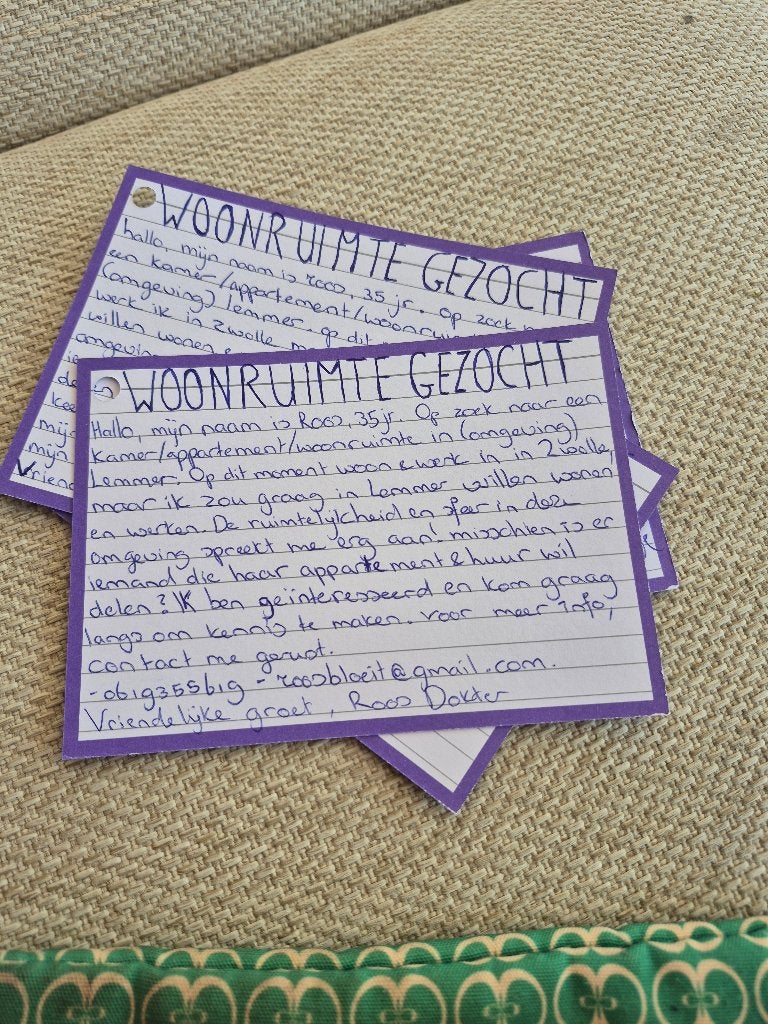 WOONRUIMTE GEZOCHT
hallo, mijn naam is roos, 35 jr. op zoek
een kamer/appartement/woonrui
(omgeving) lemmer. op dit
werk ik in zwolle m
willen wonen e
omgevin
ie
de
kee
mij
mijn
Vriend
WOONRUIMTE GEZOCHT
Hallo, mijn naam is Roos, 35 jr. Op zoek naar een
kamer/appartement/woonruimte in (omgeving)
Lemmer. Op dit moment woon & werk in in Zwolle,
maar ik zou graag in Lemmer willen wonen
en werken. De ruimtelijkheid en sfeer in deze
omgeving spreekt me erg aan! misschien is er
iemand die haar appartement & huur wil
delen? Ik ben geïnteresseerd en kom graag
langs om kennis te maken. voor meer info,
contact me gerust.
- 0619355619 - roosbloeit@gmail.com.
Vriendelijke groet, Roos Dokter